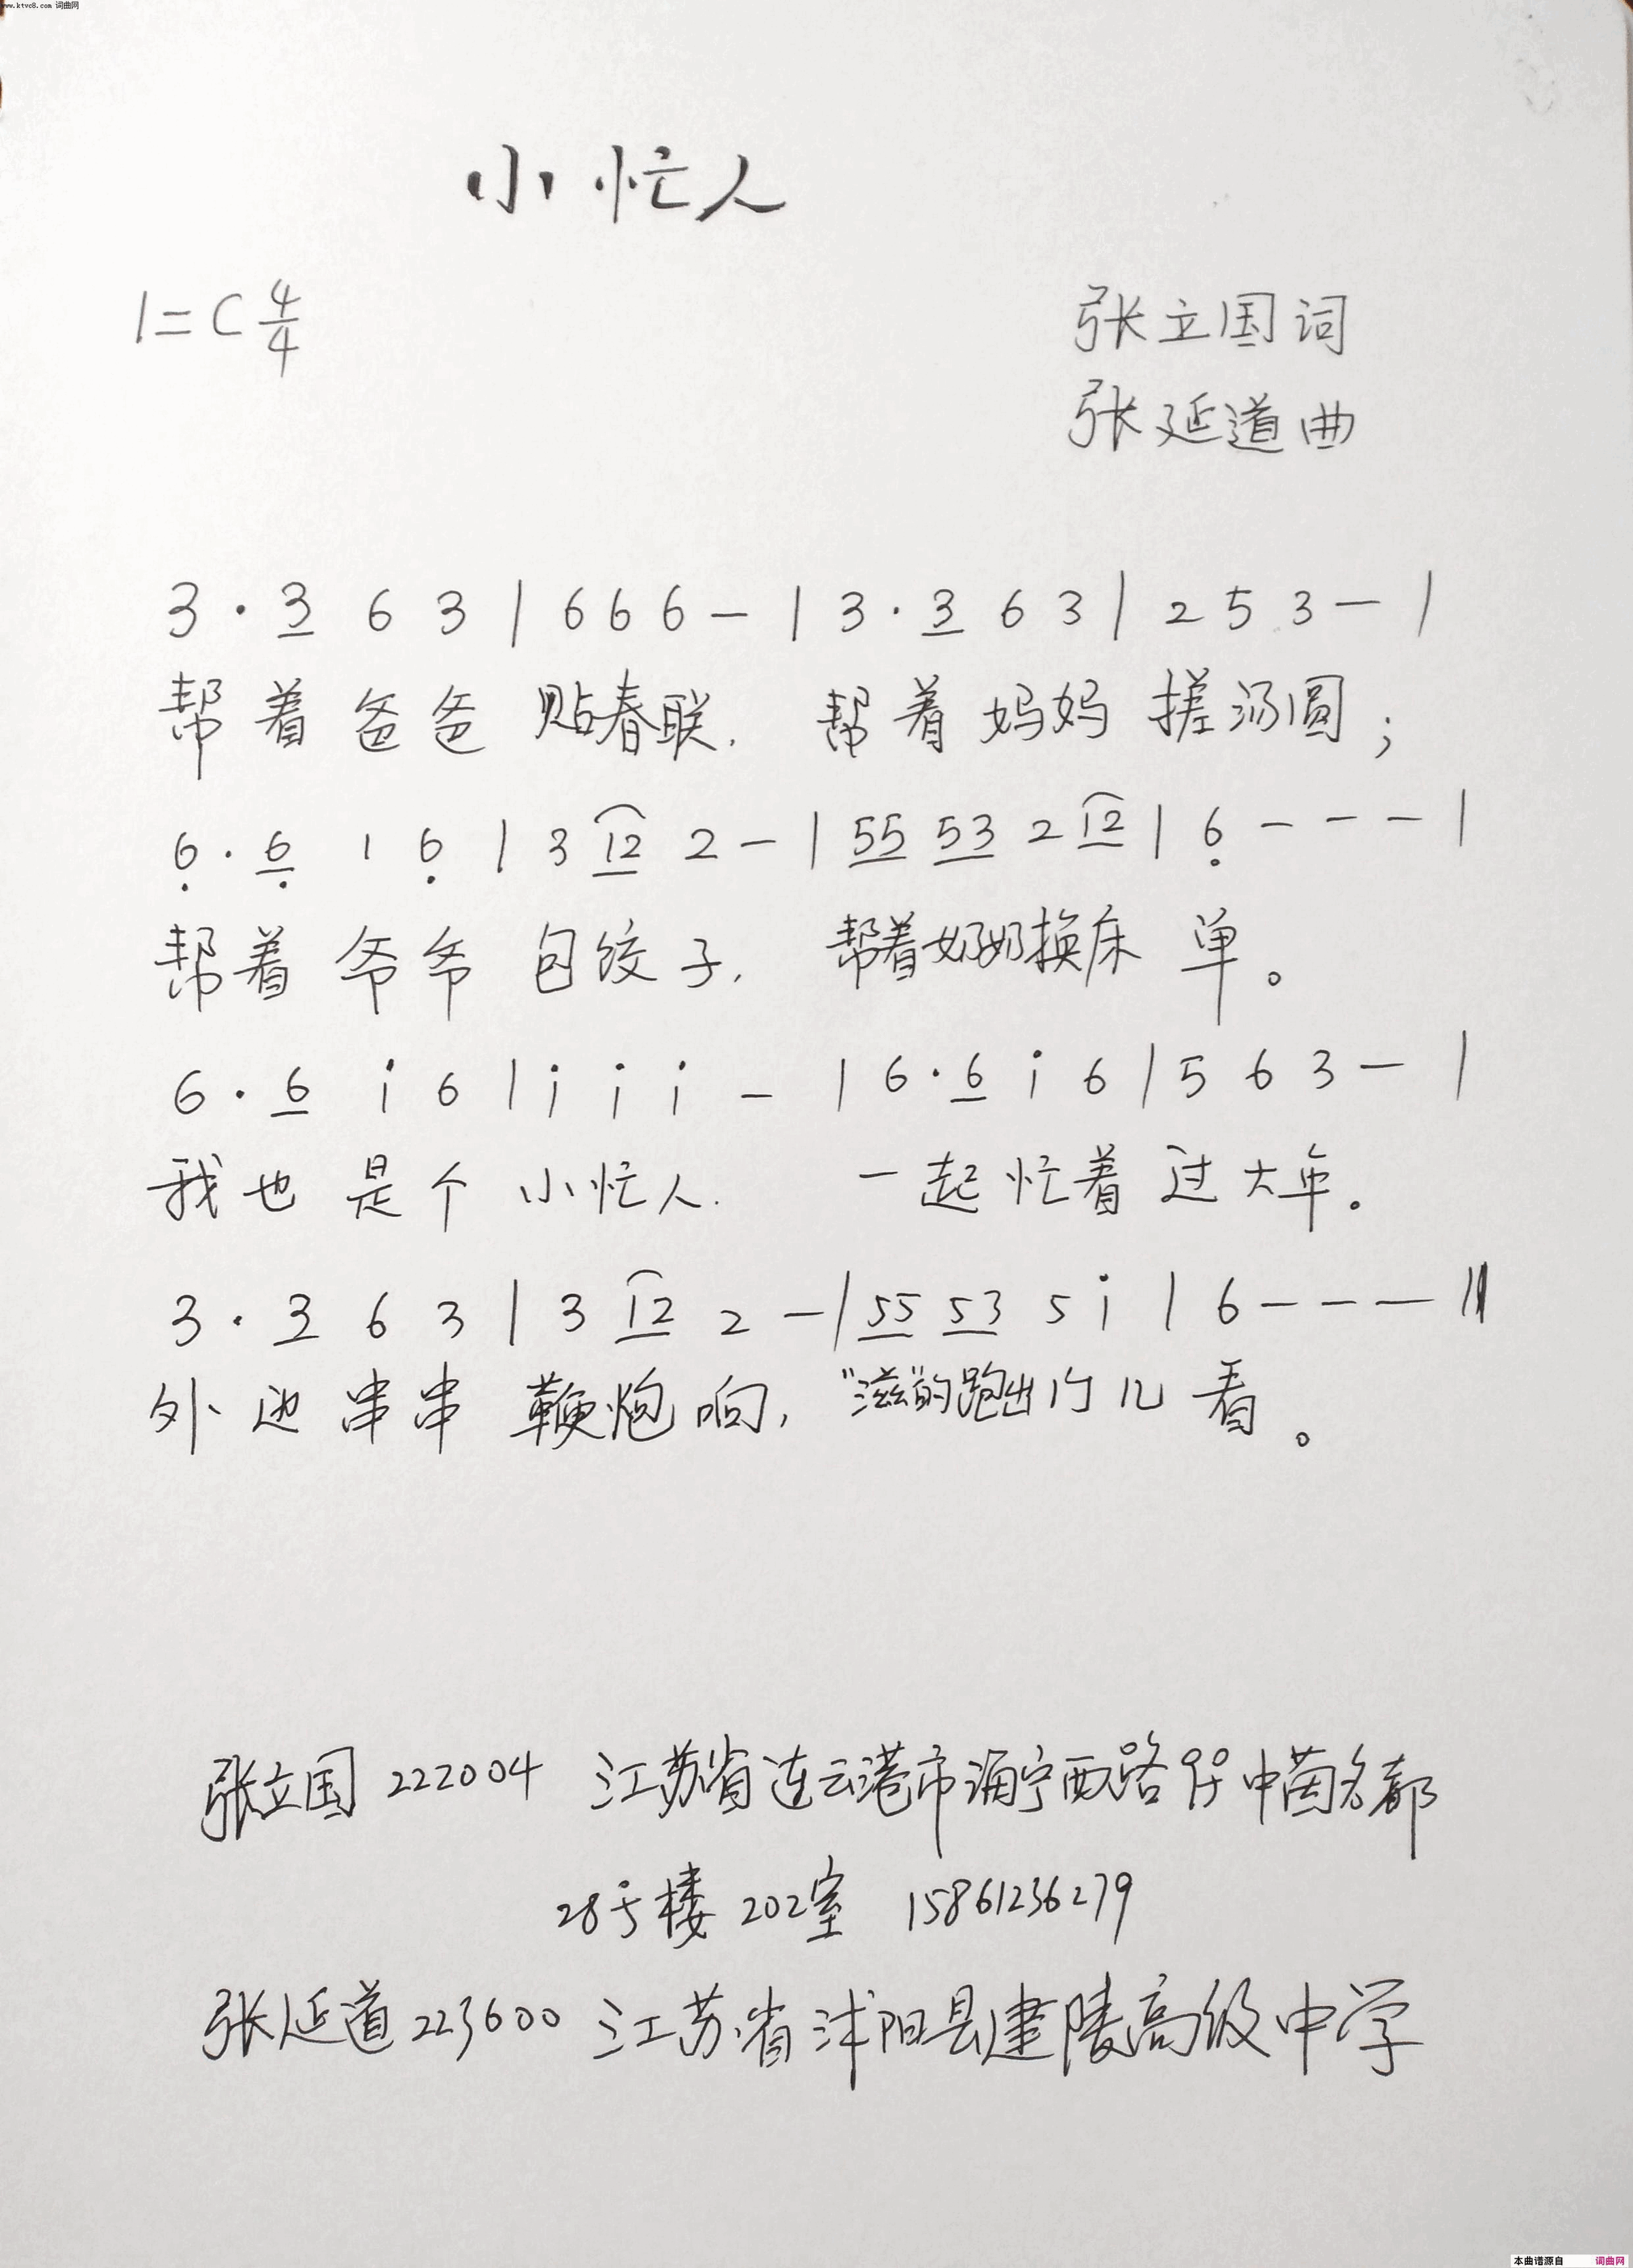 www.ktvc8.com 词曲网
小忙人
1=C 4/4
张立国词
张延道曲
3 · 3 6 3 | 6 6 6 - | 3 · 3 6 3 | 2 5 3 - |
帮着爸爸 贴春联, 帮着妈妈 搓汤圆;
6̣ · 6̣ 1 6̣ | 3 12 2 - | 55 53 2 12 | 6̣ - - - |
帮着爷爷 包饺子, 帮着奶奶换床 单。
6 · 6 i 6 | i i i - | 6 · 6 i 6 | 5 6 3 - |
我也是个 小忙人. 一起忙着 过大年。
3 · 3 6 3 | 3 12 2 - | 55 53 5 i | 6 - - - ‖
外边串串 鞭炮响, “滋”的跑出门儿 看。
张立国 222004 江苏省连云港市海宁西路99号中茵名都
28号楼 202室 15861236279
张延道 223600 江苏省沭阳县建陵高级中学
本曲谱源自 词曲网